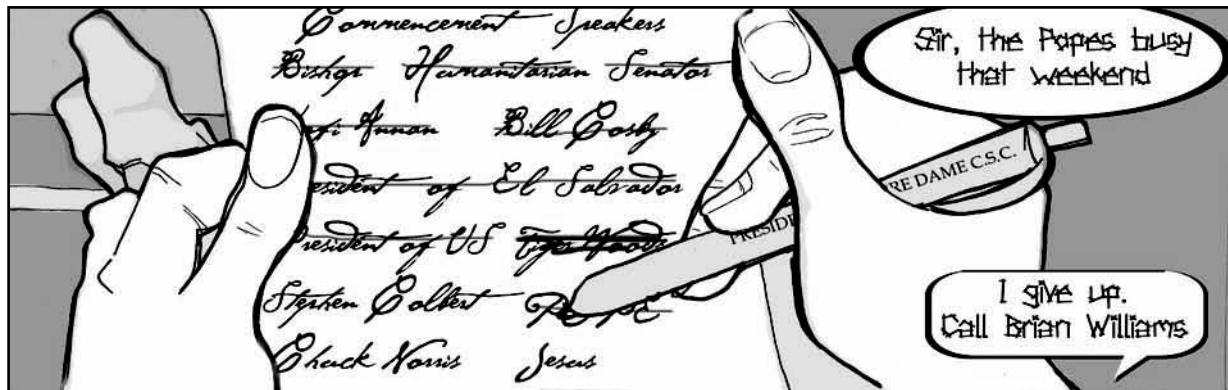 Commencement Speakers
Bishop Humanitarian Senator
Annan Bill Cosby
resident of El Salvador
President of US Tiger Woods
Stephen Colbert POPE
Chuck Norris Jesus
Sir, the Popes busy
that weekend
PRESIDE RE DAME C.S.C.
I give up.
Call Brian Williams